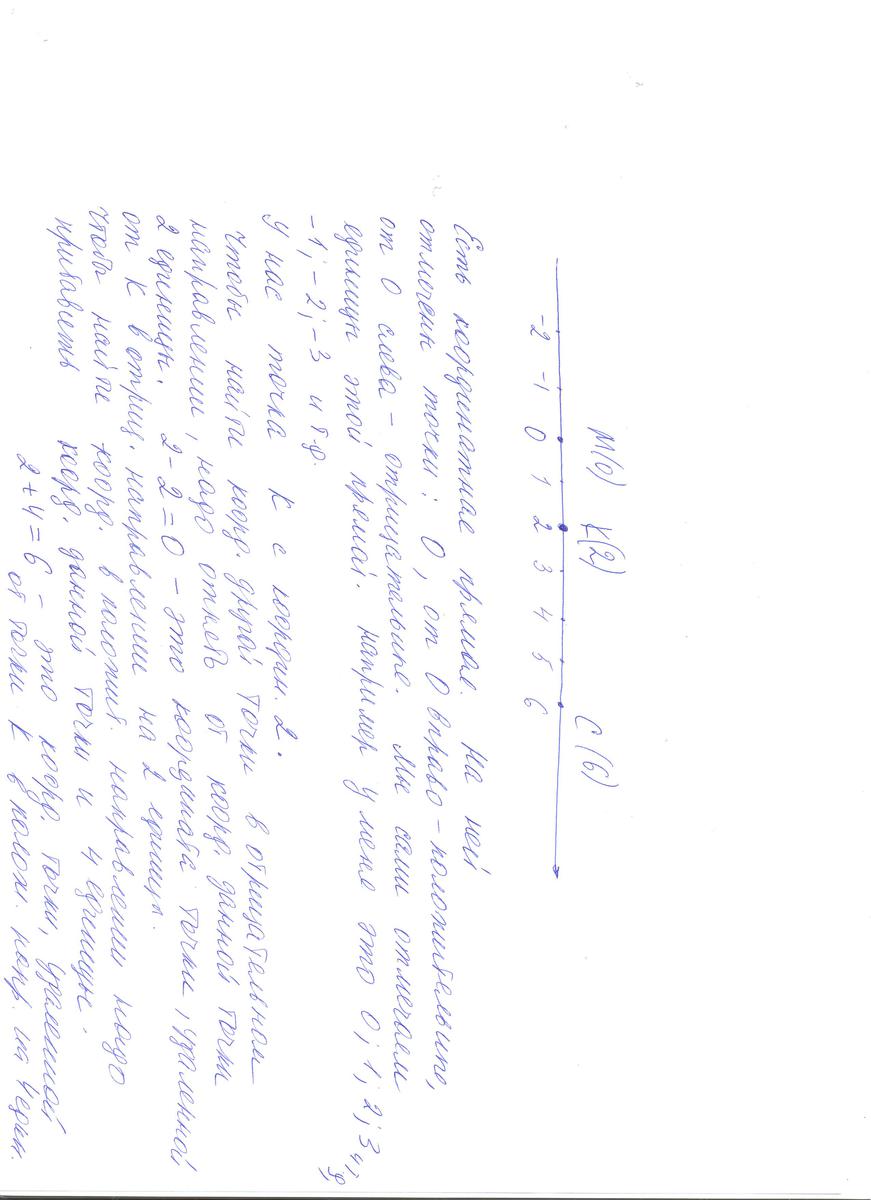 М(0) К(2) С(6)
-2 -1 0 1 2 3 4 5 6
Есть координатная прямая. На ней
отмечены точки: 0, от 0 вправо – положительные,
от 0 слева – отрицательные. Мы сами отмечаем
единицы этой прямой. например у меня это 0; 1; 2; 3 4;
-1; -2; -3 и т.д.
У нас точка К с коорди. 2.
Чтобы найти коорд. другой точки в отрицательном
направлении, надо отнять от коорд. данной точки
2 единицы. 2-2=0 – это координата точки, удаленной
от К в отриц. направлении на 2 единицы.
Чтобы найти коорд. в полжит. направлении надо
прибавить коорд. данной точки и 4 единицы.
2+4=6 – это коорд. точки, удаленной
от точки К в полож. напр. на 4 един.